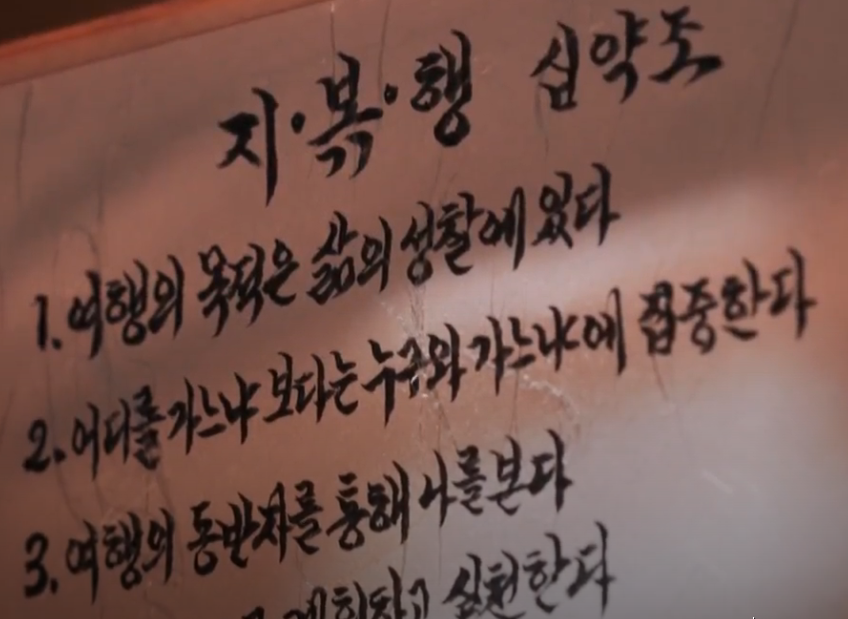 지·봌·행 십약조
1. 여행의 목적은 삶의 성찰에 있다
2. 어디를 가느냐 보다는 누구와 가느냐에 집중한다
3. 여행의 동반자를 통해 나를 본다
계획하고 실천한다